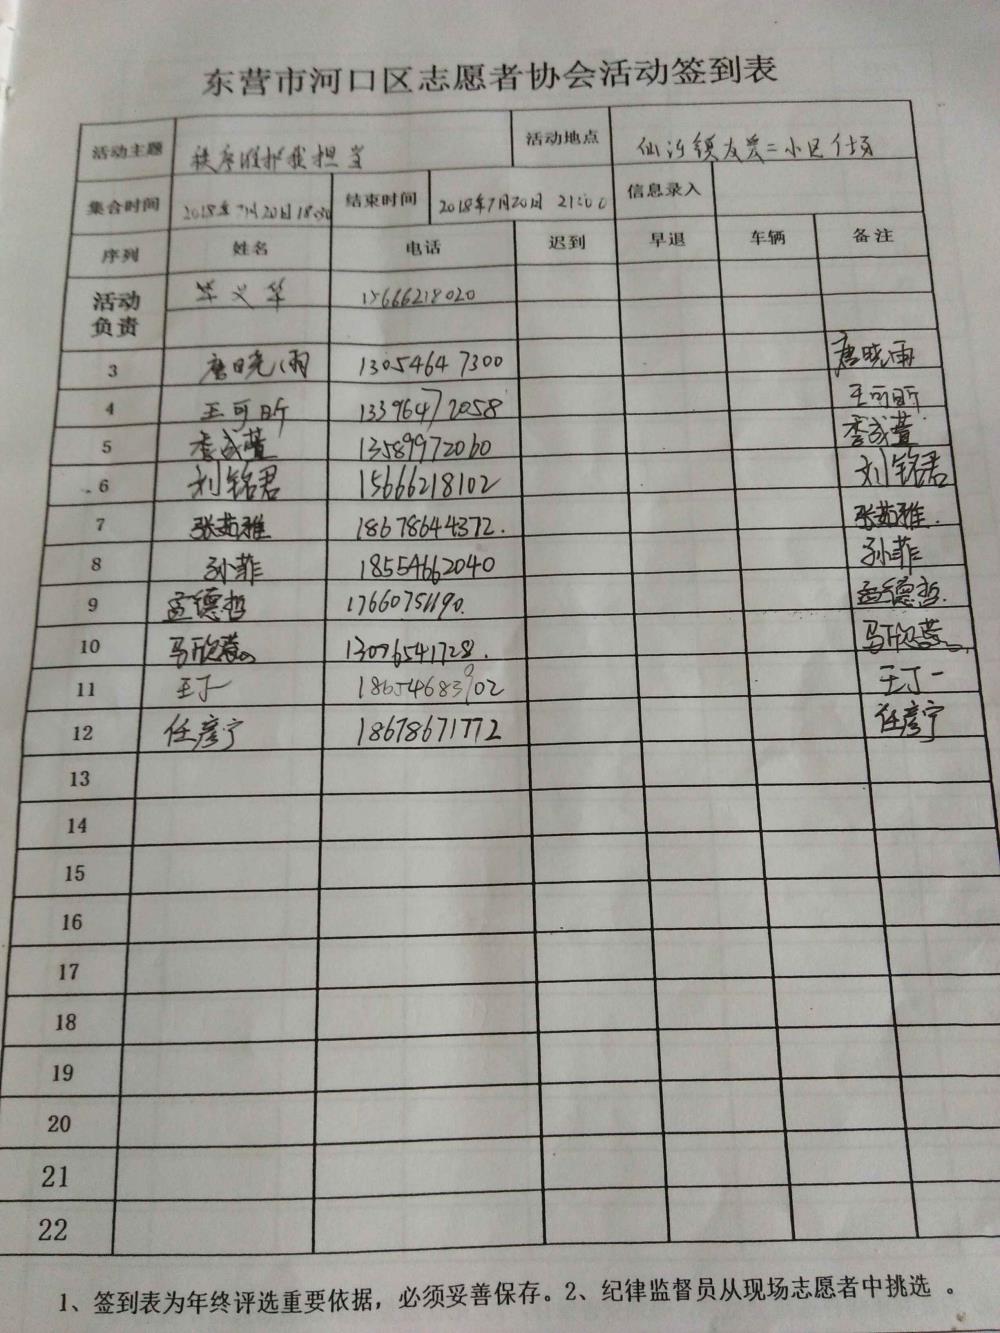 东营市河口区志愿者协会活动签到表
活动主题 秩序维护我担当 活动地点 仙河镇友爱二小区广场
集合时间 2018年7月20日18:30 结束时间 2018年7月20日 21:00 信息录入
序列 姓名 电话 迟到 早退 车辆 备注
活动负责 毕义华 15666218020
3 唐晓雨 13054647300 唐晓雨
4 王可昕 13396472058 王可昕
5 李成萱 13589972060 李成萱
6 刘铭君 15666218102 刘铭君
7 张茹雅 18678644372. 张茹雅.
8 孙菲 18554662040 孙菲
9 孟德哲 17660751190. 孟德哲.
10 马欣蕊 13096541728. 马欣蕊
11 王丁一 王丁一
12 任彦宁 18678671772 任彦宁
13
14
15
16
17
18
19
20
21
22
1、签到表为年终评选重要依据，必须妥善保存。2、纪律监督员从现场志愿者中挑选 。